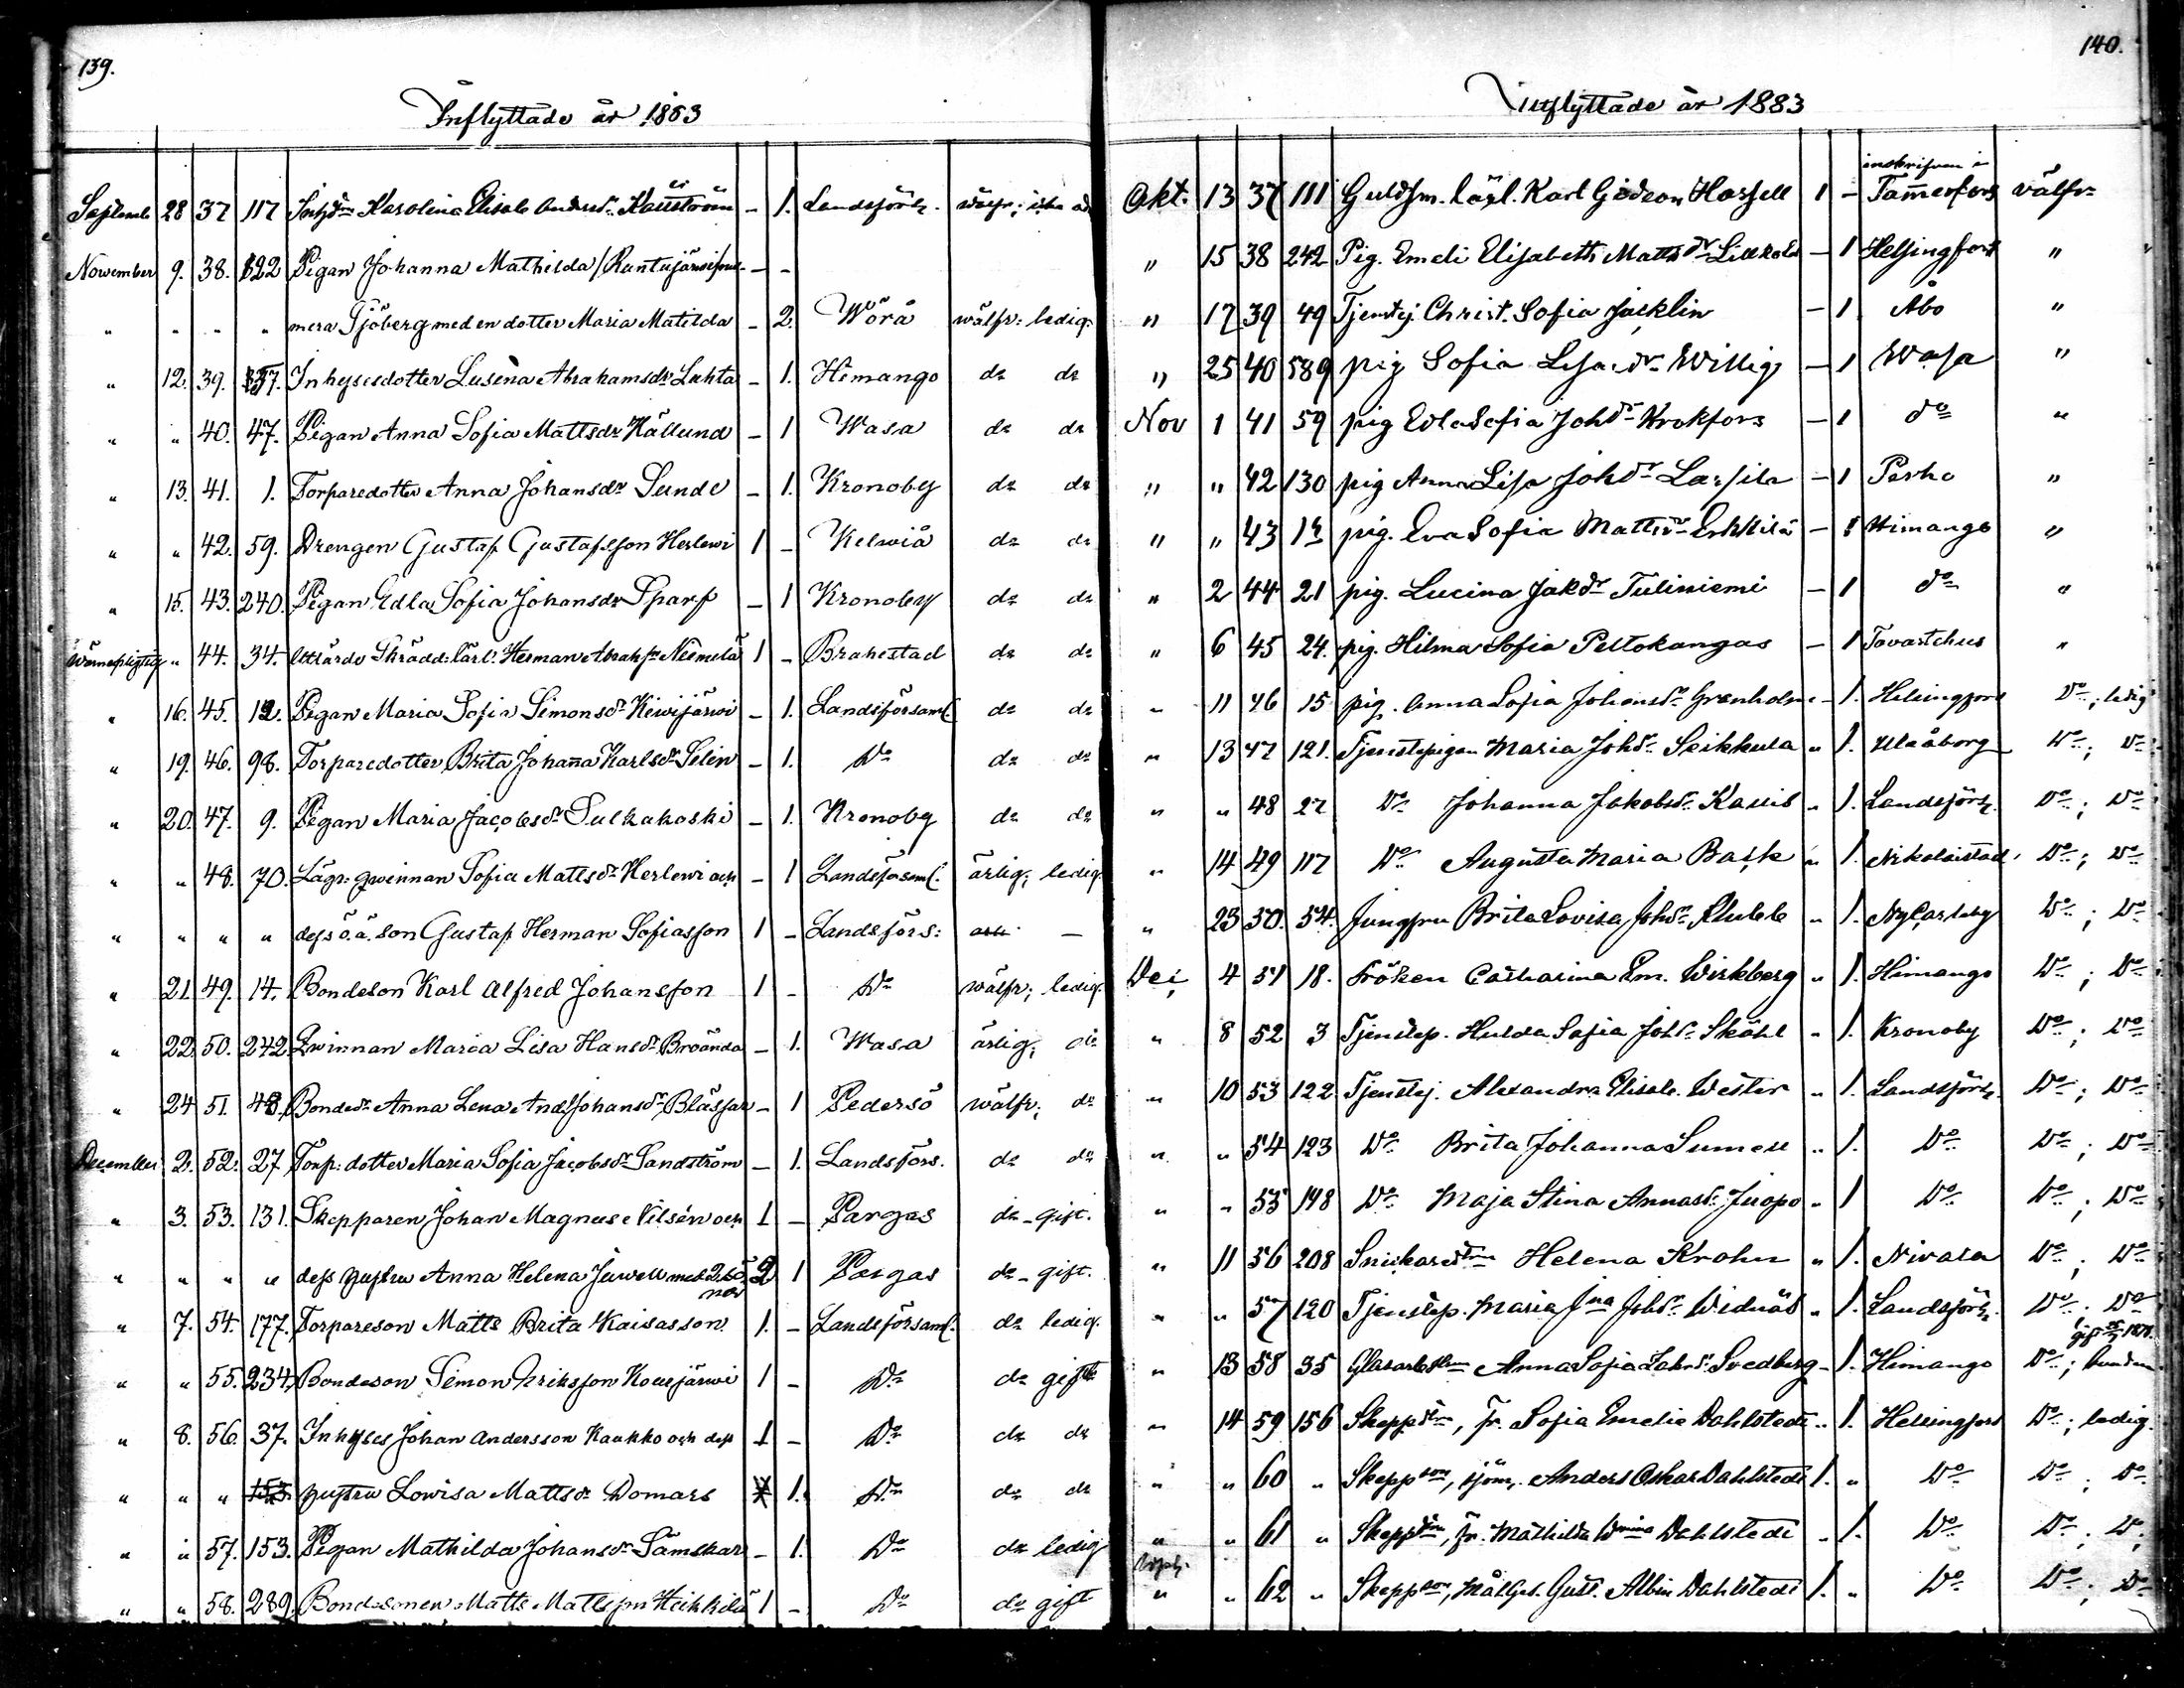 139.
Inflyttade år 1883
September 28 37 117 Inhysdr Karolina Elisab. Andersdr Kauström – 1. Landsförs. wälfr; icke
November 9. 38. 122 Pigan Johanna Mathilda /Runtujärvi/ – –
" " " " mera Sjöberg med en dotter Maria Matilda – 2. Wörå wälfr: ledig.
" 12. 39. 337. Inhysesdotter Lusena Abrahamsdr Lahta – 1. Himango do do
" " 40. 47. Pigan Anna Sofia Mattsdr Källund – 1 Wasa do do
" 13. 41. 1. Torparedotter Anna Johansdr Sunde – 1. Kronoby do do
" " 42. 59. Drengen Gustaf Gustafsson Herlewi 1 – Kelwiå do do
" 15. 43. 240. Pigan Edla Sofia Johansdr Sparf – 1 Kronoby do do
Wärnepligtig " 44. 34. Utlärde Skrädd: lärl: Herman Abrahsn Niemelä 1 – Brahestad do do
" 16. 45. 12. Pigan Maria Sofia Simonsdr Kiwijärwi – 1. Landsförsaml. do do
" 19. 46. 98. Torparedotter Brita Johana Karlsdr Selin – 1. Do do do
" 20. 47. 9. Pigan Maria Jacobsdr Sulkakoski – 1. Kronoby do do
" " 48. 70. Lägr: qwinnan Sofia Mattsdr Herlewi och – 1 Landsförsaml. ärlig; ledig.
" " " " dess o.ä. son Gustaf Herman Sofiasson 1 – Landsförs: –
" 21. 49. 14. Bondeson Karl Alfred Johansson 1 – Do wälfr; ledig.
" 22. 50. 242 Qwinnan Maria Lisa Hansdr Broända – 1. Wasa ärlig; do
" 24 51. 43. Bondedr Anna Lena And Johansdr Blåsjar – 1 Pedersö wälfr; do
December 2. 52. 27 Torp: dotter Maria Sofia Jacobsdr Sandström – 1. Landsförs. do do
" 3. 53. 131. Skepparen Johan Magnus Nilsén och 1 – Pargas do gift.
" " " " dess hustru Anna Helena Juwell med 2 sö ner 2 1 Pargas do gift.
" 7. 54. 177. Torpareson Matts Brita Kaisasson 1. – Landsförsaml. do ledig.
" " 55. 234. Bondeson Simon Eriksson Kouejärwi 1 – Do do gift
" 8. 56. 37. Inhyses Johan Andersson Kaukko och dess 1 – Do do do
" " " 153. hustru Lowisa Mattsdr Domars 1. Do do do
" " 57. 153. Pigan Mathilda Johansdr Sämskar – 1. Do do ledig
" " 58. 289. Bondesonen Matts Mattsson Heikkilä 1 – Do do gift
140.
Utflyttade år 1883
inskrifven i
Okt. 13 37 111 Guldsm. lärl. Karl Gideon Hassell 1 – Tammerfors välfr
" 15 38 242 Pig. Emeli Elisabeth Mattsdr – 1 Helsingfors "
" 17 39 49 Tjenstej Christ. Sofia Jacklin – 1 Åbo "
" 25 40 589 pig Sofia Lisa dr Willig – 1 Wasa "
Nov 1 41 59 pig Edla Sofia Johdr Krokfors – 1 do "
" " 42 130 pig Anna Lisa Johdr Lassila – 1 Perho "
" " 43 14 pig. Eva Sofia Mattsdr Erkkilä – 1 Himango "
" 2 44 21 pig. Lucina Jakdr Tuliniemi – 1 do "
" 6 45 24. pig. Hilma Sofia Peltokangas – 1 Tavastehus "
" 11 46 15 pig. Anna Sofia Johansdr Granholm – 1. Helsingfors Do; ledig
" 13 47 121. Tjenstepigan Maria Johdr Seikkula " 1. Uleåborg Do; Do
" " 48 27 Do Johanna Jakobsdr Kassib " 1. Landsförs. Do; Do
" 14 49 117 Do Augusta Maria Back " 1. Nikolaistad. Do; Do
" 23 50. 54. Jungfru Brita Lovisa Johdr Klubb " 1. NyCarleby Do; Do
Dec 4 51 18. Fröken Catharina Em. Wirkberg " 1. Himango Do; Do
" 8 52 3 Tjenstep. Hulda Sofia Johdr Ståhl " 1. Kronoby Do; Do
" 10 53 122 Tjenstej. Alexandra Elisab. Wester " 1. Landsförs. Do; Do
" " 54 123 Do Brita Johanna Sumell " 1. Do Do; Do
" " 55 148 Do Maja Stina Annasdr Juopo " 1 Do Do; Do
" 11 56 208 Snickaredrn Helena Krohn " 1. Nivala Do; Do
" " 57 120 Tjenstep. Maria Jna Johdr Widnäs " 1. Landsförs. Do; Do
" 13 58 35 Glasarb Anna Sofia Svedberg – 1. Himango Do;
" 14 59 156 Skeppdrn, Fr. Sofia Emelie Dahlstedt " 1. Helsingfors Do; ledig.
" " 60 " Skeppson, sjöm. Anders Oskar Dahlstedt 1. " Do Do; Do
" " 61 " Skeppdrn, Fr. Mathilda Wmina Dahlstedt " 1. Do Do; Do
" " 62 " Skeppson, Mål.ges. Gust. Albin Dahlstedt 1. " Do Do; Do